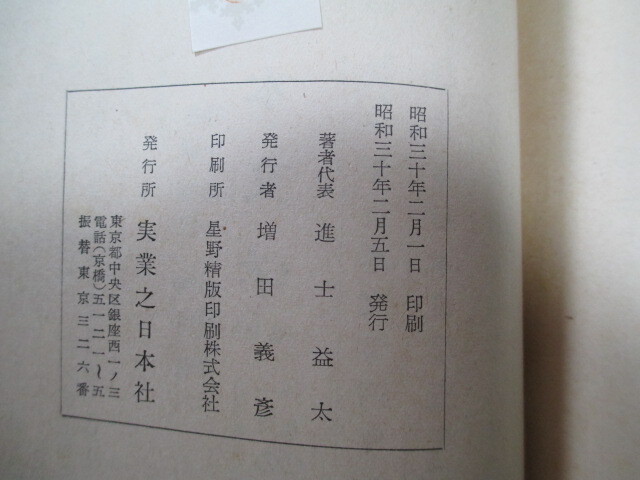 昭和三十年二月一日 印刷
昭和三十年二月五日 発行
著者代表 進士益太
発行者 増田義彦
印刷所 星野精版印刷株式会社
発行所 実業之日本社
東京都中央区銀座西一ノ三
電話(京橋)五一二一〜五
振替東京三二六番